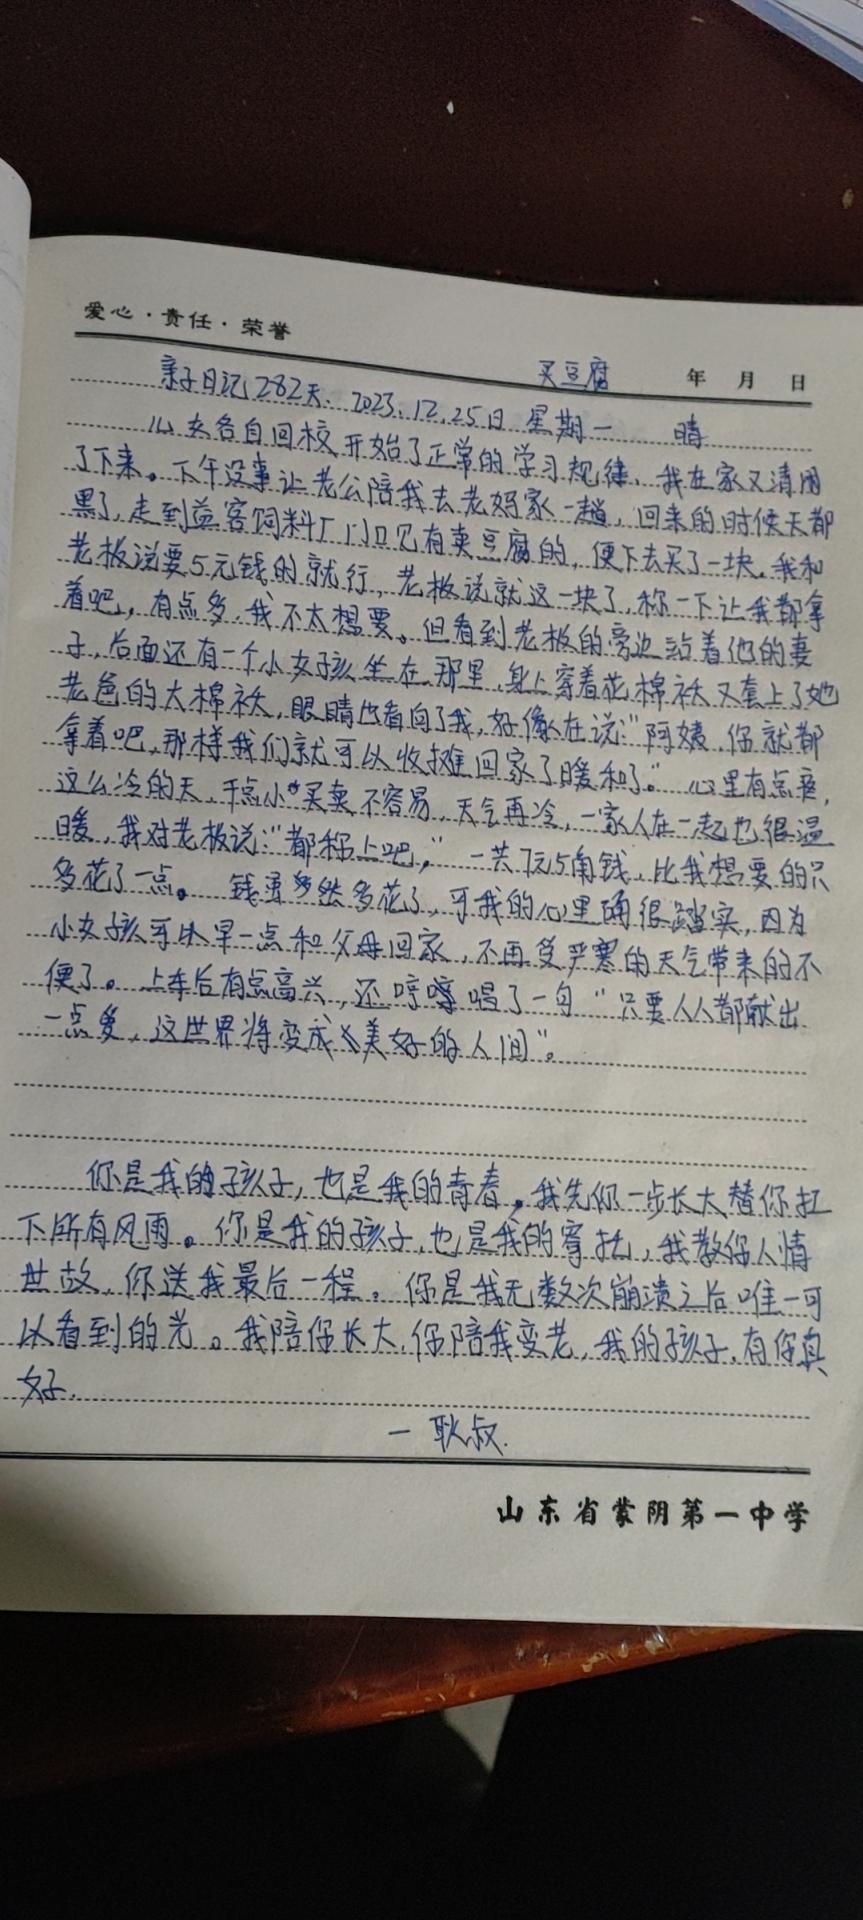 爱心·责任·荣誉
买豆腐 年 月 日
亲子日记282天. 2023.12.25日 星期一 晴
儿女各自回校开始了正常的学习规律、我在家又清闲
了下来。下午没事让老公陪我去老妈家一趟，回来的时候天都
黑了，走到益客饲料厂门口见有卖豆腐的，便下去买了一块。我和
老板说要5元钱的就行，老板说就这一块了，称一下让我都拿
着吧，有点多，我不太想要。但看到老板的旁边站着他的妻
子，后面还有一个小女孩坐在那里，身上穿着花棉袄又套上了她
老爸的大棉袄，眼睛也看向了我，好像在说：“阿姨，你就都
拿着吧，那样我们就可以收摊回家了暖和了。”心里有点疼，
这么冷的天，干点小买卖不容易，天气再冷，一家人在一起也很温
暖，我对老板说：“都称上吧，”一共7元5角钱，比我想要的只
多花了一点。钱虽然多花了，可我的心里确很踏实，因为
小女孩可以早一点和父母回家，不再受严寒的天气带来的不
便了。上车后有点高兴，还哼哼唱了一句“只要人人都献出
一点爱，这世界将变成美好的人间”。
你是我的孩子，也是我的青春，我先你一步长大替你扛
下所有风雨。你是我的孩子，也是我的寄托，我教你人情
世故，你送我最后一程。你是我无数次崩溃之后唯一可
以看到的光。我陪你长大，你陪我变老，我的孩子，有你真
好.
一耿叔.
山东省蒙阴第一中学